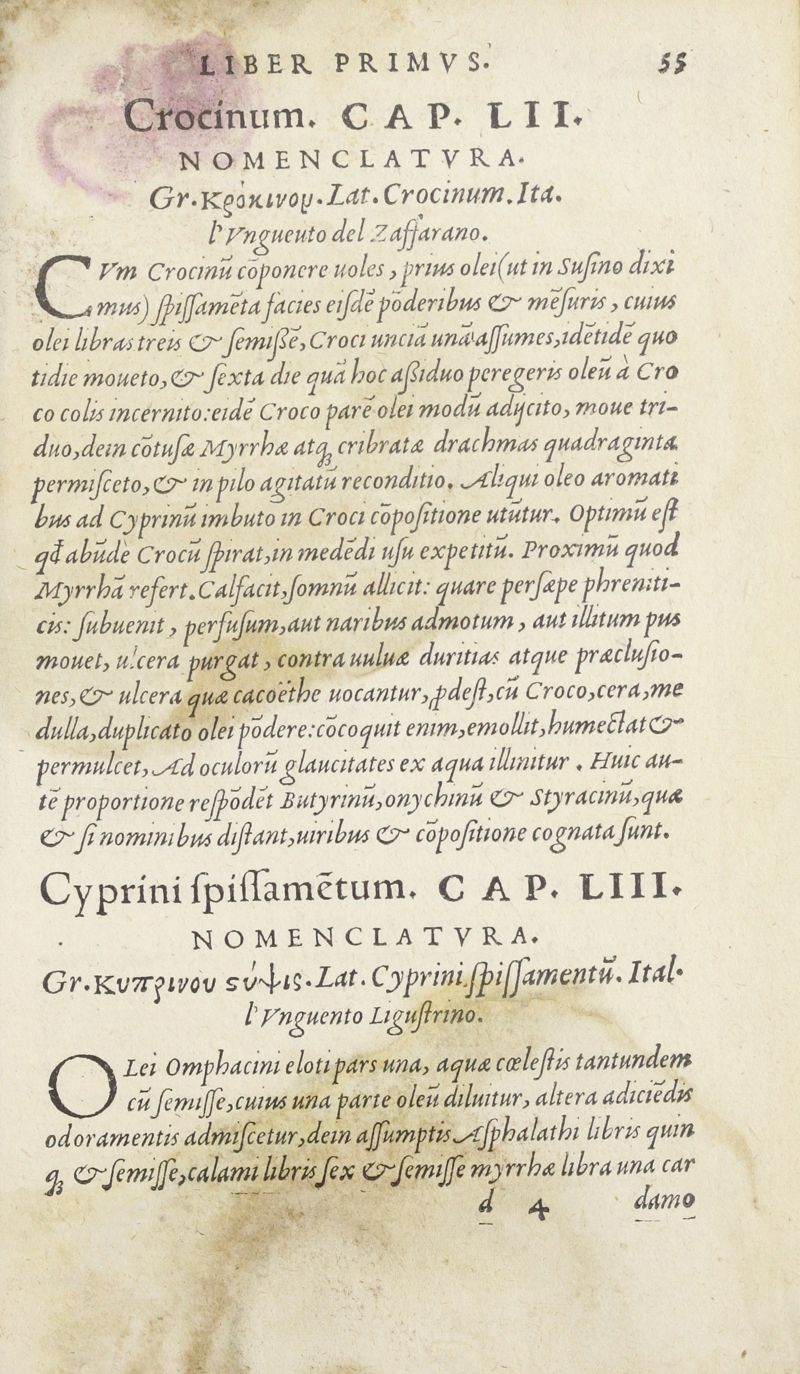 LIBER PRIMVS. 55
Crocinum. CAP. LII.
NOMENCLATVRA.
Gr. Κρόκινου. Lat. Crocinum. Ita.
l'Vngueuto del Zaffarano.
CVm Crocinū cōponere uoles, prius olei (ut in Susino dixi
mus) spissamēta facies eisdē pōderibus & mēsuris, cuius
olei libras treis & semißē, Croci unciā unā assumes, idētidē quo
tidie moueto, & sexta die quā hoc aßiduo peregeris oleū à Cro
co colis incernito: eidē Croco parē olei modū adijcito, moue tri-
duo, dein cōtusæ Myrrhæ atq; cribratæ drachmas quadraginta
permisceto, & in pilo agitatū reconditio. Aliqui oleo aromati
bus ad Cyprinū imbuto in Croci cōpositione utūtur. Optimū est
qđ abūdè Crocū spirat, in medēdi usu expetitū. Proximū quod
Myrrhā refert. Calfacit, somnū allicit: quare persæpe phreniti-
cis: subuenit, perfusum, aut naribus admotum, aut illitum pus
mouet, ulcera purgat, contra uuluæ duritias atque præclusio-
nes, & ulcera quæ cacoëthe uocantur, ꝓdest, cū Croco, cera, me
dulla, duplicato olei pōdere: cōcoquit enim, emollit, humectat &
permulcet, Ad oculorū glaucitates ex aqua illinitur. Huic au-
tē proportione respōdēt Butyrinū, onychinū & Styracinū, quæ
& si nominibus distant, uiribus & cōpositione cognata sunt.
Cyprini spissamētum. CAP. LIII.
NOMENCLATVRA.
Gr. Κυπρινου ςύψις. Lat. Cyprini spissamentū. Ital.
l'Vnguento Ligustrino.
OLei Omphacini eloti pars una, aquæ cœlestis tantundem
cū semisse, cuius una parte oleū diluitur, altera adiciēdis
odoramentis admiscetur, dein assumptis Asphalathi libris quin
q; & semisse, calami libris sex & semisse myrrhæ libra una car
d 4 damo